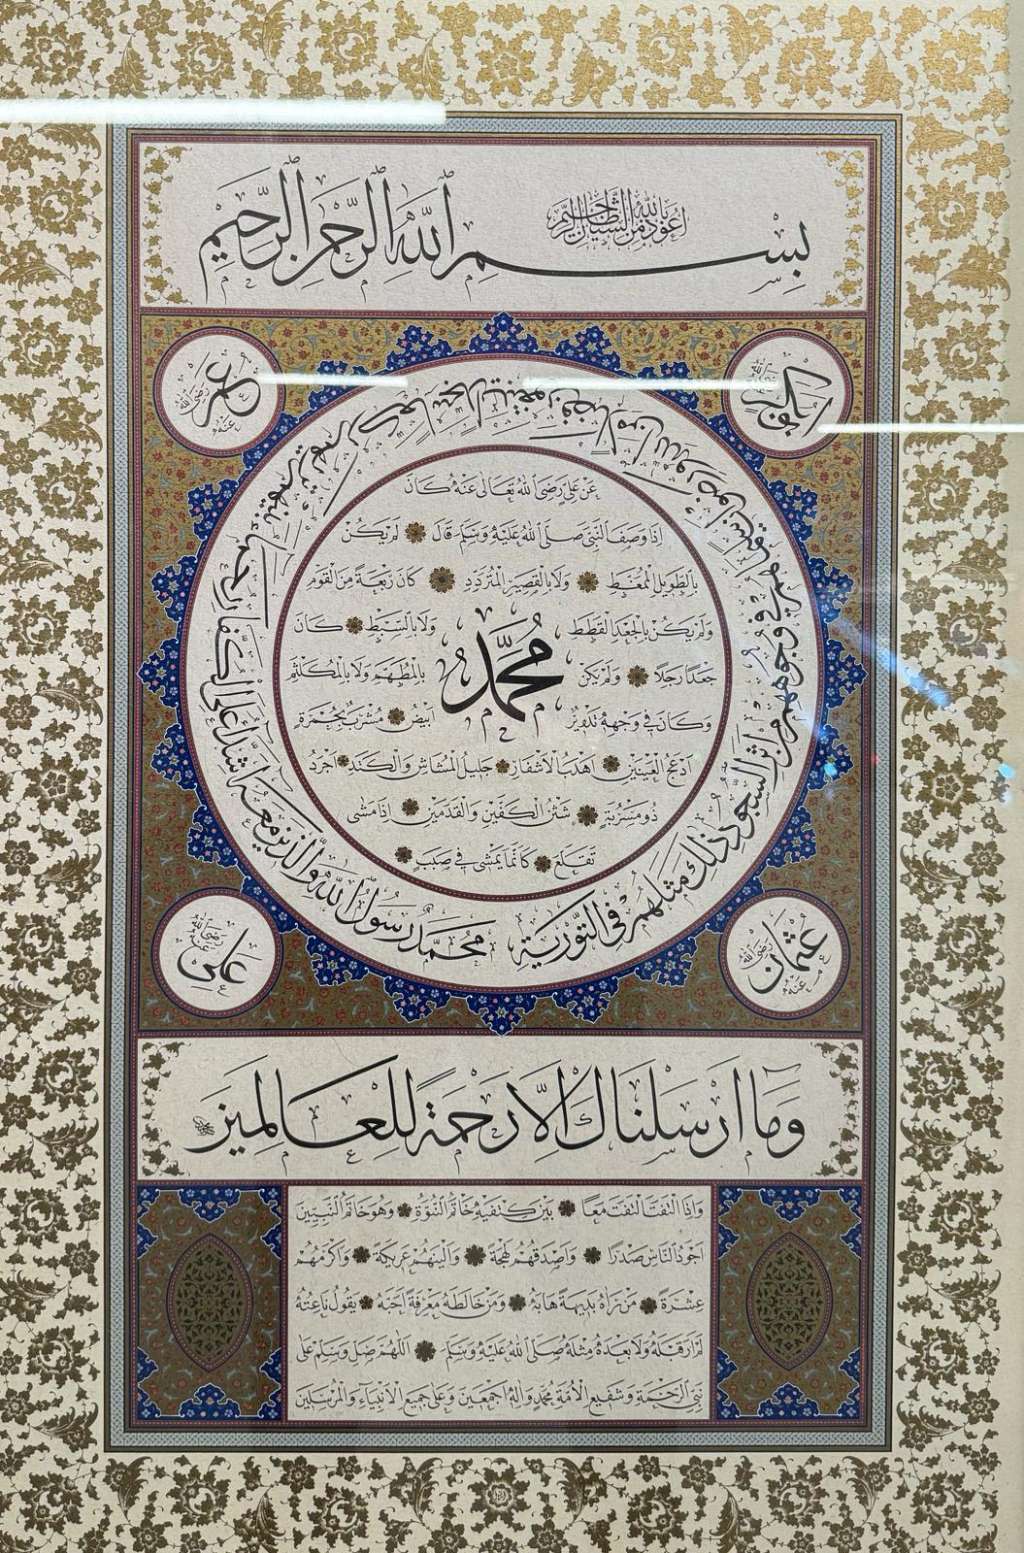 أعوذ بالله من الشيطان الرجيم
بِسْمِ اللهِ الرَّحْمٰنِ الرَّحِيمِ
أبو بكر رضي الله عنه
عمر رضي الله عنه
محمد رسول الله والذين معه أشداء على الكفار رحماء بينهم تريهم ركعا سجدا يبتغون فضلا من الله ورضوانا سيماهم في وجوههم من اثر السجود ذلك مثلهم في التورية
عن علي رضى الله تعالى عنه كان
اذا وصف النبي صلى الله عليه وسلم قال لم يكن
بالطويل الممغط ولا بالقصير المتردد كان ربعة من القوم
ولم يكن بالجعد القطط ولا بالسبط كان
محمد
جعدا رجلا ولم يكن بالمطهم ولا بالمكلثم
وكان في وجهه تدوير ابيض مشرب بحمرة
ادعج العينين اهدب الاشفار جليل المشاش والكتد اجرد
ذو مسربة شثن الكفين والقدمين اذا مشى
تقلع كانما يمشي في صبب
عثمان رضي الله عنه
علي رضي الله عنه
وَمَا اَرْسَلْنَاكَ اِلَّا رَحْمَةً لِلْعَالَمِينَ
واذا التفت التفت معا بين كتفيه خاتم النبوة وهو خاتم النبيين
اجود الناس صدرا واصدقهم لهجة والينهم عريكة واكرمهم
عشرة من رآه بديهة هابه ومن خالطه معرفة احبه يقول ناعته
لم ار قبله ولا بعده مثله صلى الله عليه وسلم اللهم صل وسلم على
نبي الرحمة وشفيع الامة محمد وآله اجمعين وعلى جميع الانبياء والمرسلين